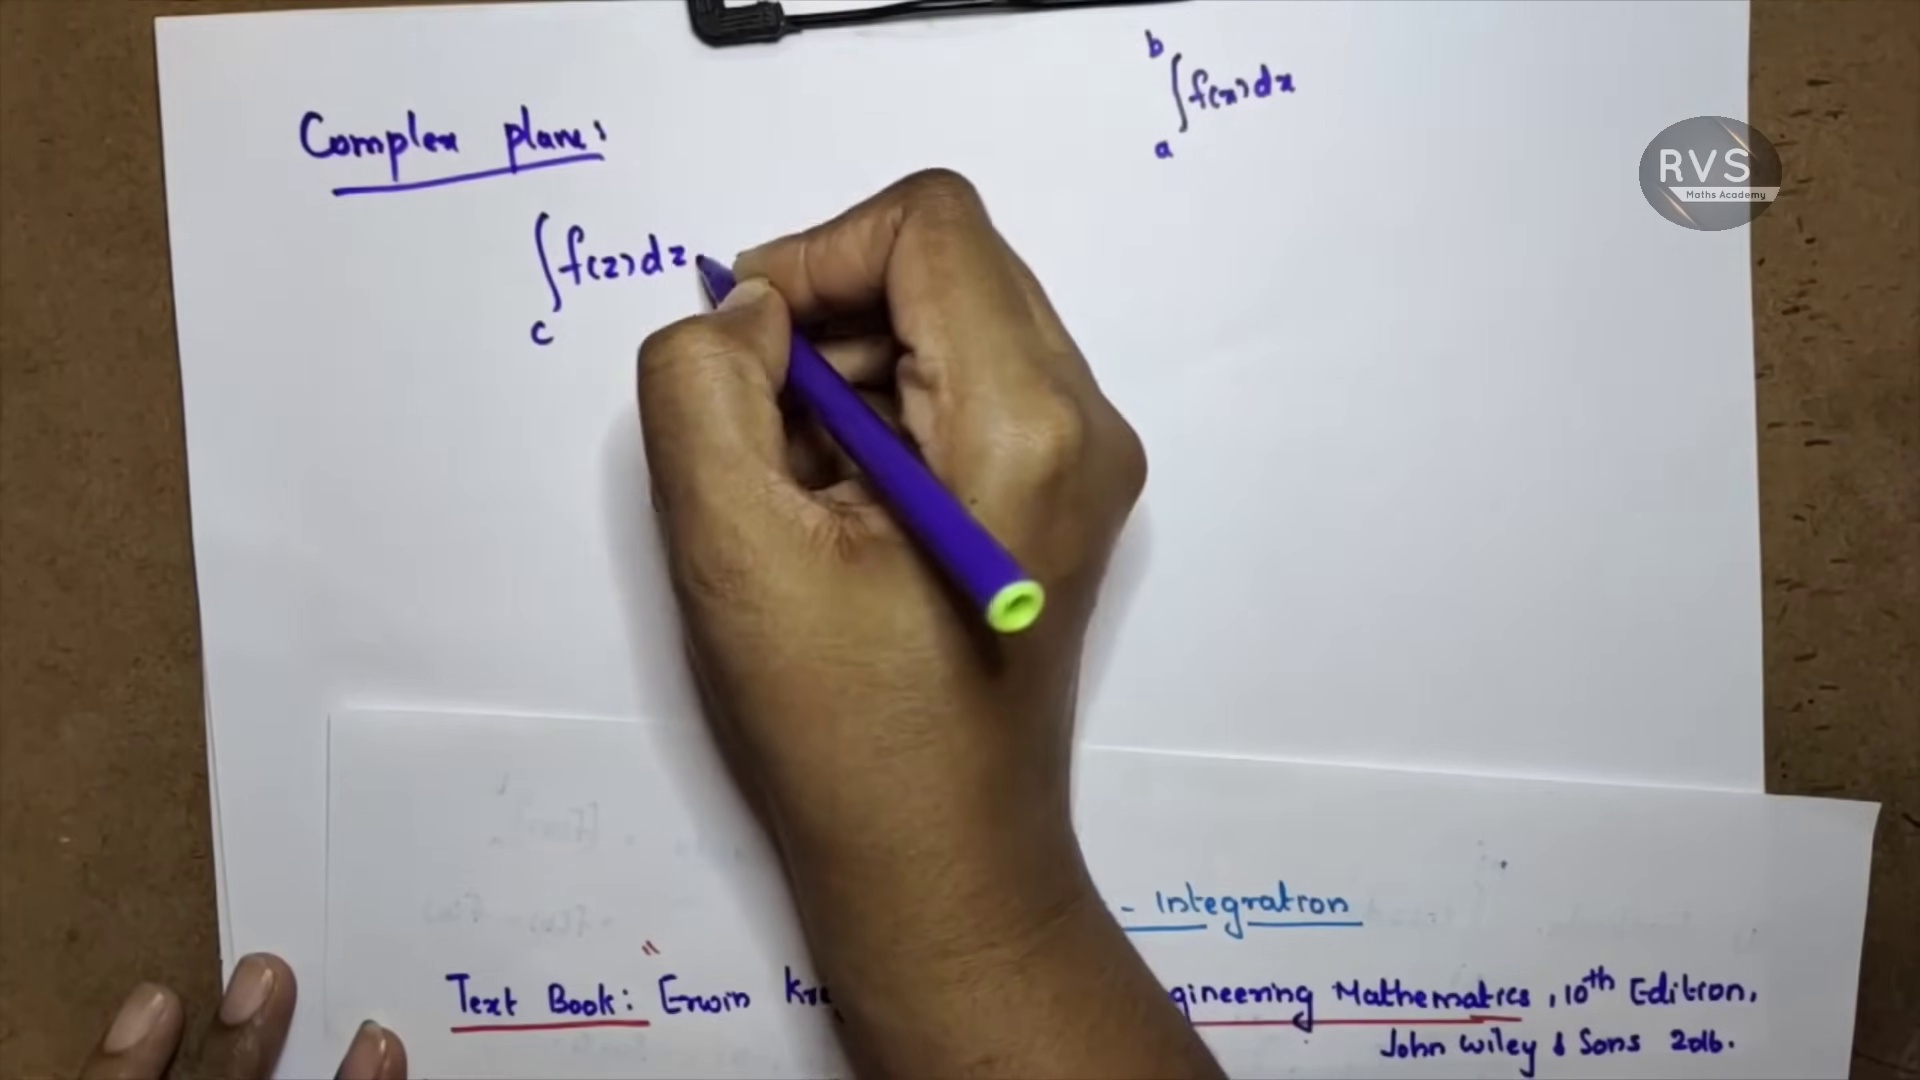 b
∫ f(x) dx
a
RVS
Maths Academy
Complex plane:
∫ f(z) dz
c
- Integration
Text Book: Erwin gineering Mathematics, 10th Edition,
John Wiley & Sons 2016.